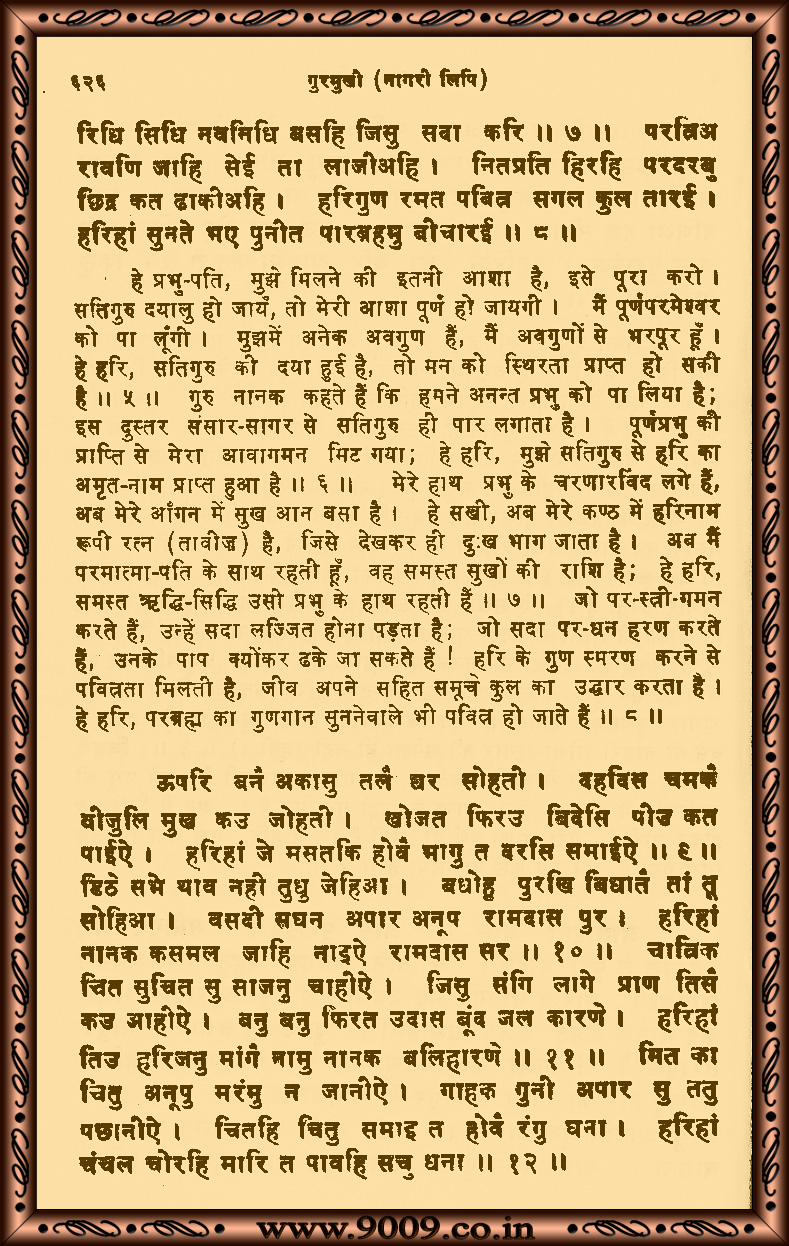 ६२६ गुरमुखी (नागरी लिपि)
रिधि सिधि नवनिधि बसहि जिसु सदा करि ॥ ७ ॥ परत्रिअ
रावणि जाहि सेई ता लाजीअहि । नितप्रति हिरहि परदरबु
छिद्र कत ढाकीअहि । हरिगुण रमत पवित्र सगल कुल तारई ।
हरिहां सुनते भए पुनीत पारब्रहमु बीचारई ॥ ८ ॥
हे प्रभु-पति, मुझे मिलने की इतनी आशा है, इसे पूरा करो ।
सतिगुरु दयालु हो जायँ, तो मेरी आशा पूर्ण हो जायगी । मैं पूर्णपरमेश्वर
को पा लूंगी । मुझमें अनेक अवगुण हैं, मैं अवगुणों से भरपूर हूँ ।
हे हरि, सतिगुरु की दया हुई है, तो मन को स्थिरता प्राप्त हो सकी
है ॥ ५ ॥ गुरु नानक कहते हैं कि हमने अनन्त प्रभु को पा लिया है;
इस दुस्तर संसार-सागर से सतिगुरु ही पार लगाता है । पूर्णप्रभु की
प्राप्ति से मेरा आवागमन मिट गया; हे हरि, मुझे सतिगुरु से हरि का
अमृत-नाम प्राप्त हुआ है ॥ ६ ॥ मेरे हाथ प्रभु के चरणारविंद लगे हैं,
अब मेरे आँगन में सुख आन बसा है । हे सखी, अब मेरे कण्ठ में हरिनाम
रूपी रत्न (तावीज़) है, जिसे देखकर ही दुःख भाग जाता है । अब मैं
परमात्मा-पति के साथ रहती हूँ, वह समस्त सुखों की राशि है; हे हरि,
समस्त ऋद्धि-सिद्धि उसी प्रभु के हाथ रहती हैं ॥ ७ ॥ जो पर-स्त्री-गमन
करते हैं, उन्हें सदा लज्जित होना पड़ता है; जो सदा पर-धन हरण करते
हैं, उनके पाप क्योंकर ढके जा सकते हैं ! हरि के गुण स्मरण करने से
पवित्रता मिलती है, जीव अपने सहित समूचे कुल का उद्धार करता है ।
हे हरि, परब्रह्म का गुणगान सुननेवाले भी पवित्र हो जाते हैं ॥ ८ ॥
ऊपरि बनै अकासु तलै धर सोहती । दहदिस चमकै
बीजुलि मुख कउ जोहती । खोजत फिरउ बिदेसि पीउ कत
पाईऐ । हरिहां जे मसतकि होवै भागु त दरसि समाईऐ ॥ ९ ॥
डिठे सभे थाव नही तुधु जेहिआ । बधोहु पुरखि बिधातै तां तू
सोहिआ । वसदी सघन अपार अनूप रामदास पुर । हरिहां
नानक कसमल जाहि नाइऐ रामदास सर ॥ १० ॥ चात्रिक
चित सुचित सु साजनु चाहीऐ । जिसु संगि लागे प्राण तिसै
कउ आहीऐ । बनु बनु फिरत उदास बूंद जल कारणे । हरिहां
तिउ हरिजनु मांगै नामु नानक बलिहारणे ॥ ११ ॥ मित का
चितु अनूपु मरंमु न जानीऐ । गाहक गुनी अपार सु ततु
पछानीऐ । चितहि चितु समाइ त होवै रंगु घना । हरिहां
चंचल चोरहि मारि त पावहि सचु धना ॥ १२ ॥
www.9009.co.in